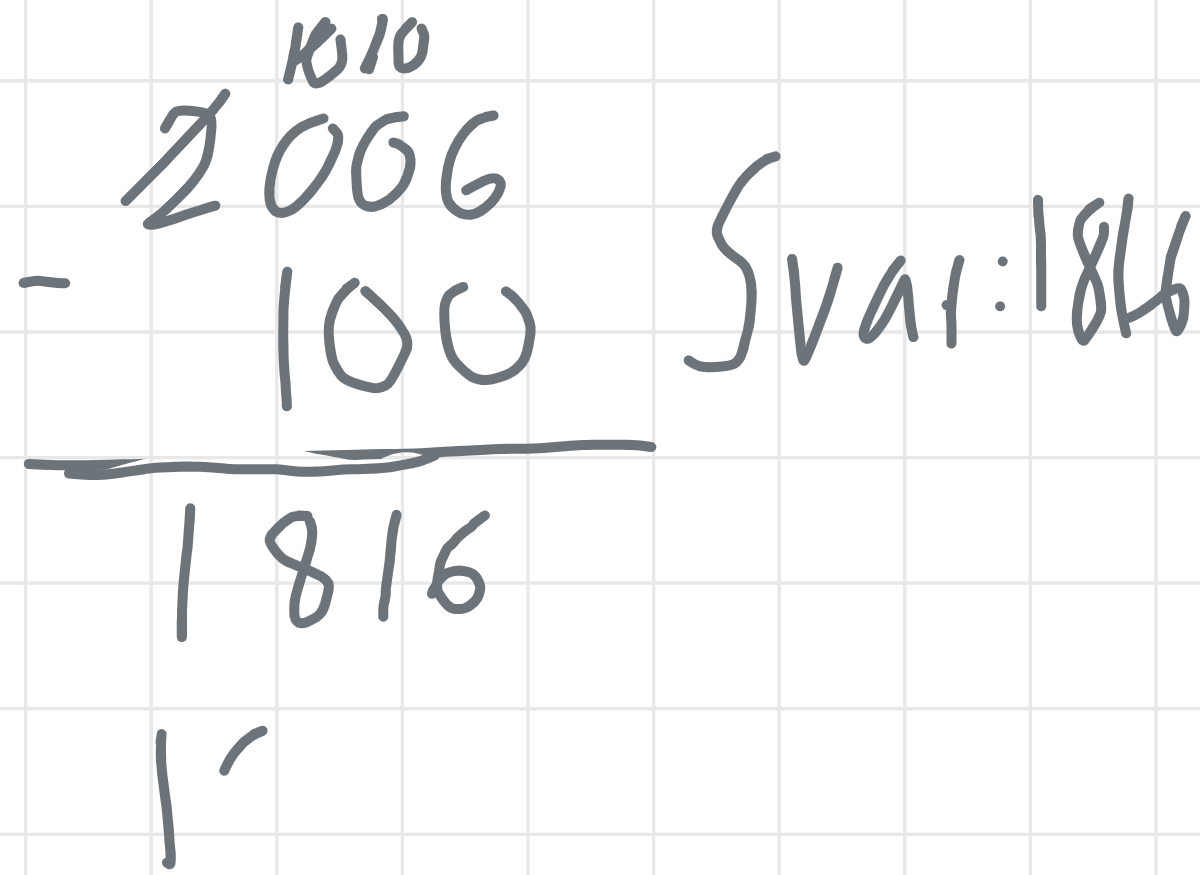 10 10
2006
- 100
1816
Svar: 1816
1